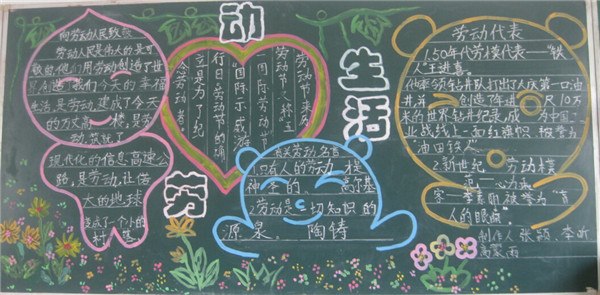 劳动
生活
向劳动人民致敬
劳动人民是伟大的是可
敬的他们用劳动创造了世
界造了我们今天的幸福
生活,是劳动,建成了今天
的万丈高楼,是劳
动筑就了
现代化的信息高速公
路,是劳动,让偌
大的地球
变成了一个小的
村
劳动节来历
国际劳动节
劳动节
国际示威游
行日
是为了纪
念劳动者
有关劳动名言
只有人的劳动
神圣的 高尔基
劳动是一切知识的
源泉。 陶铸
劳动代表
1.50年代劳模代表——"铁
人"王进喜。
他率领钻井队打出了大庆第一口油
井,并创造了年进尺10万
米的世界钻井纪录,成为中国工
业战线上一面红旗帜被誉为
"油田铁人"
2.新世纪 劳动模
范 为
家——李素丽被誉为"盲
人的眼睛"
制作人 张颖、李昕
高蒙雨